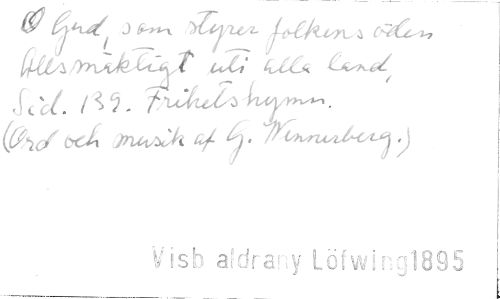 O Gud, som styrer folkens öden
Allsmäktigt uti alla land,
Sid. 139. Frihetshymn.
(Ord och musik af G. Wennerberg.)
Visb aldrany Löfwing1895